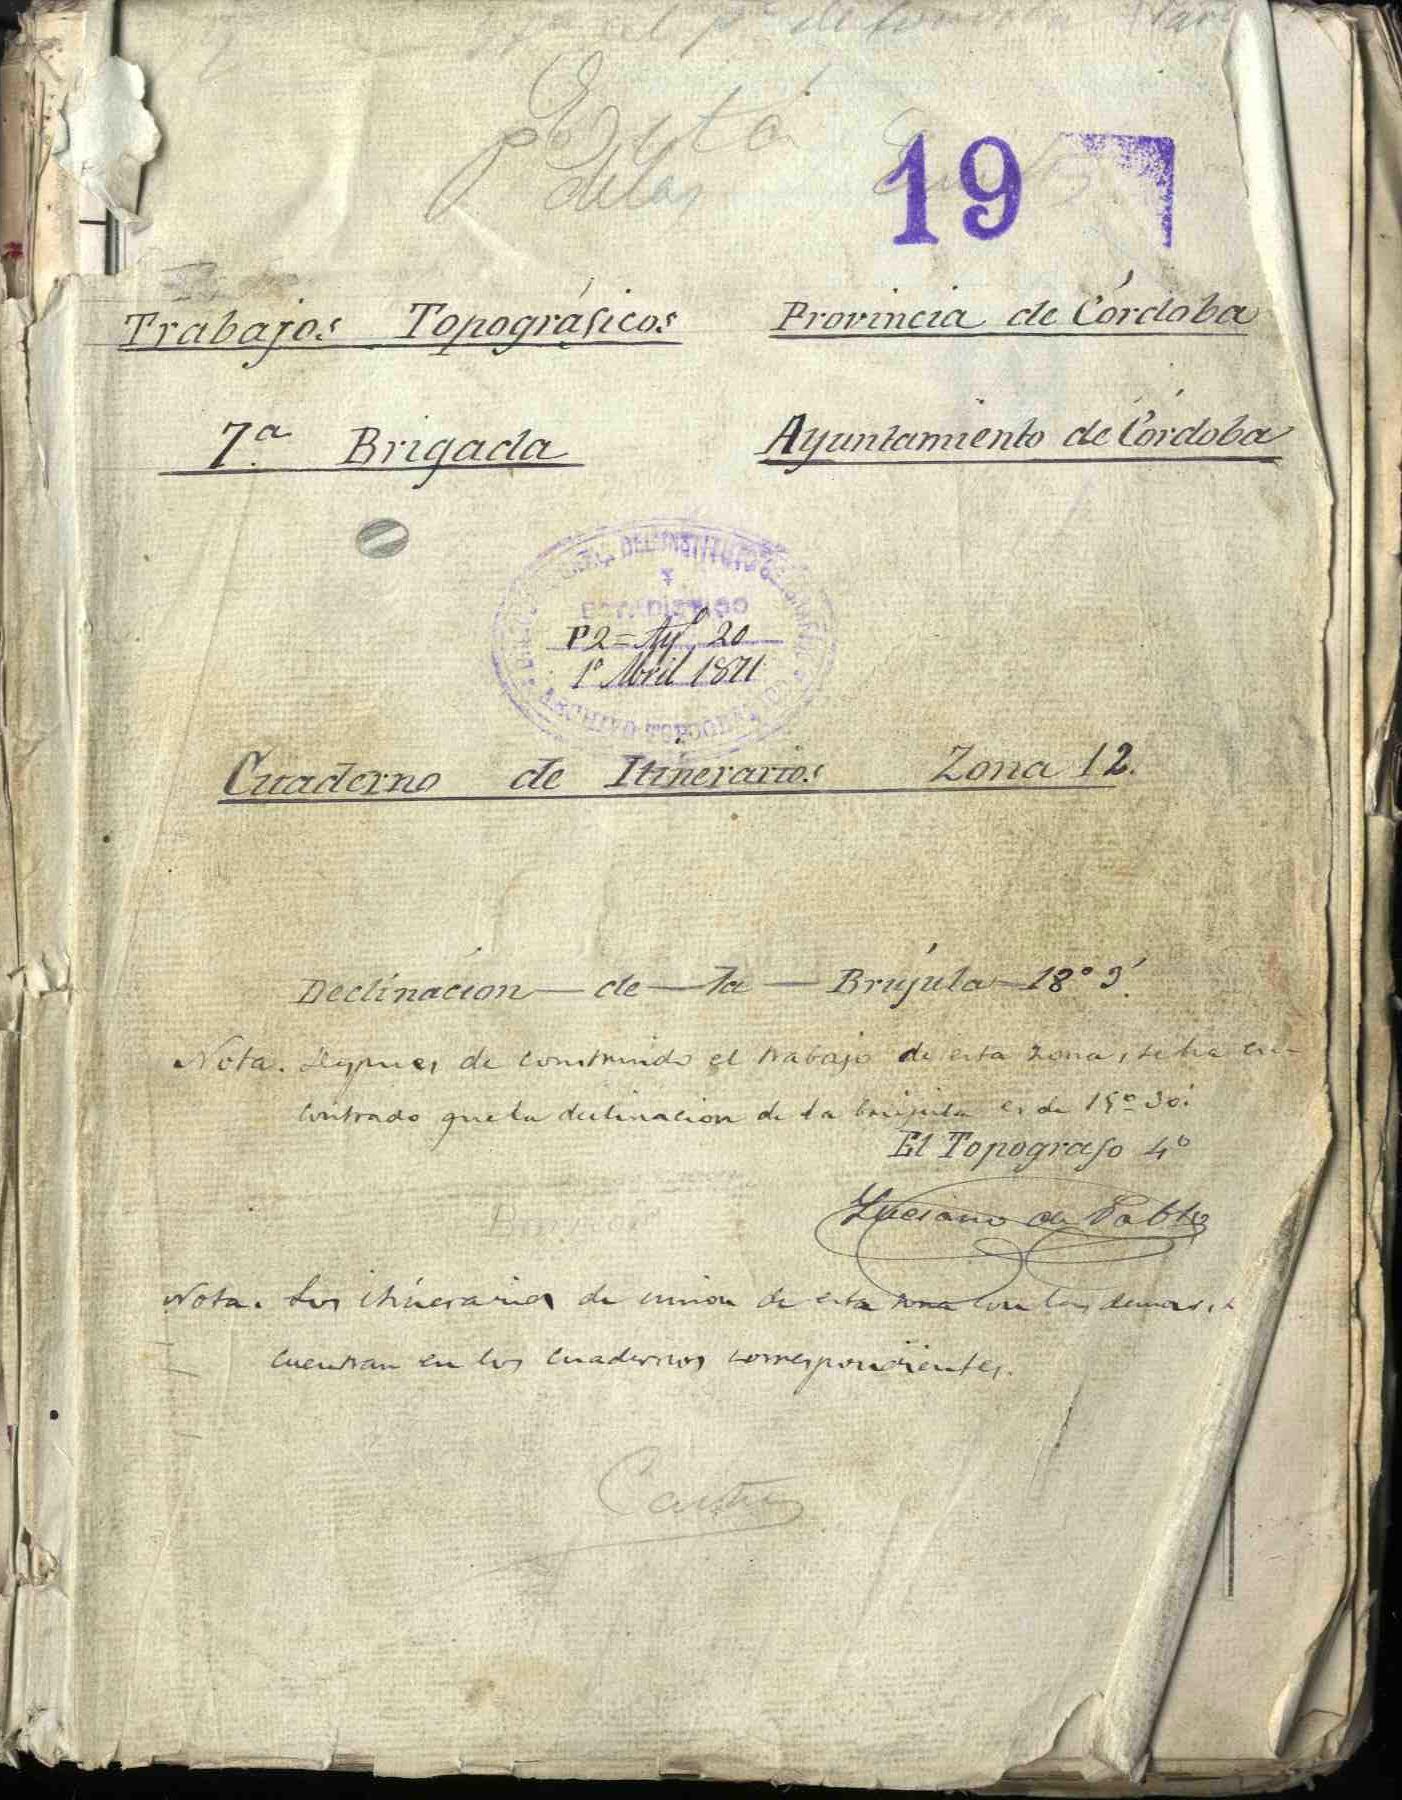 Está
de las
19
Trabajos Topográficos Provincia de Córdoba
7.ª Brigada Ayuntamiento de Córdoba
DEL INSTITUTO
ESTADISTICO
P 2 = 20
1º Abril 1871
ARCHIVO
Cuaderno de Itinerarios Zona 12.
Declinación — de — la — Brújula — 18º 9'.
Nota. Despues de construido el trabajo de esta zona, se ha en-
contrado que la declinacion de la brújula es de 30'.
El Topografo 4º
Luciano de Pablo
Nota. Los itinerarios de union de esta zona con las demas,
cuentran en los cuadernos correspondientes.